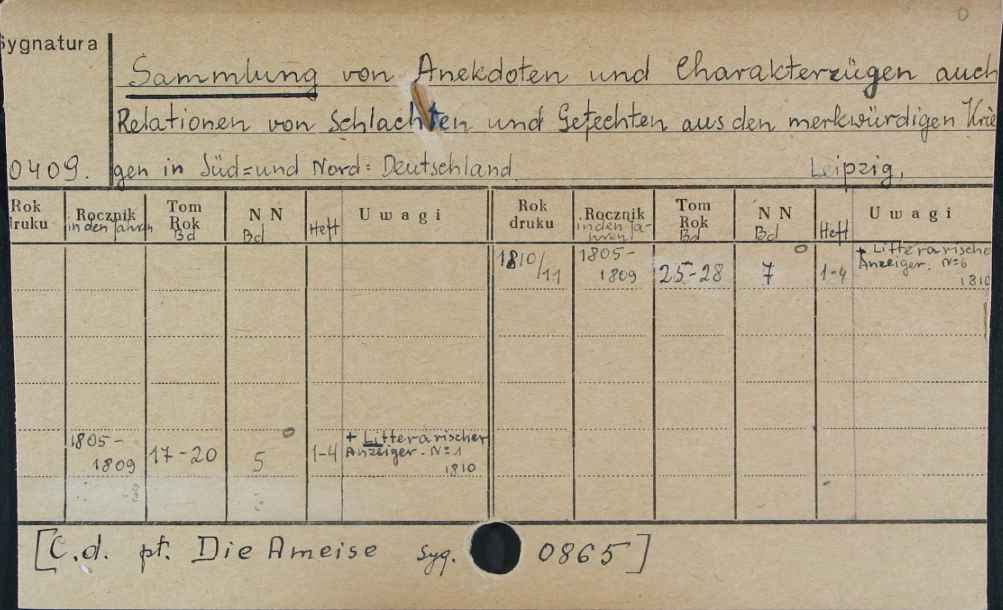 0
Sygnatura
Sammlung von Anekdoten und Charakterzügen auch
Relationen von Schlachten und Gefechten aus den merkwürdigen Krie
0409. gen in Süd=und Nord=Deutschland Leipzig,
Rok druku Rocznik in den Jahren Tom Rok Bd NN Bd Heft Uwagi Rok druku Rocznik in den Ja-hren Tom Rok Bd NN Bd Heft Uwagi
1810/11 1805-1809 25-28 7 1-4 + Litterarische Anzeiger. N=6 1810
1805-1809 17-20 5 1-4 + Litterarischer Anzeiger. N=1 1810
[C.d. pt. Die Ameise Syg. 0865]